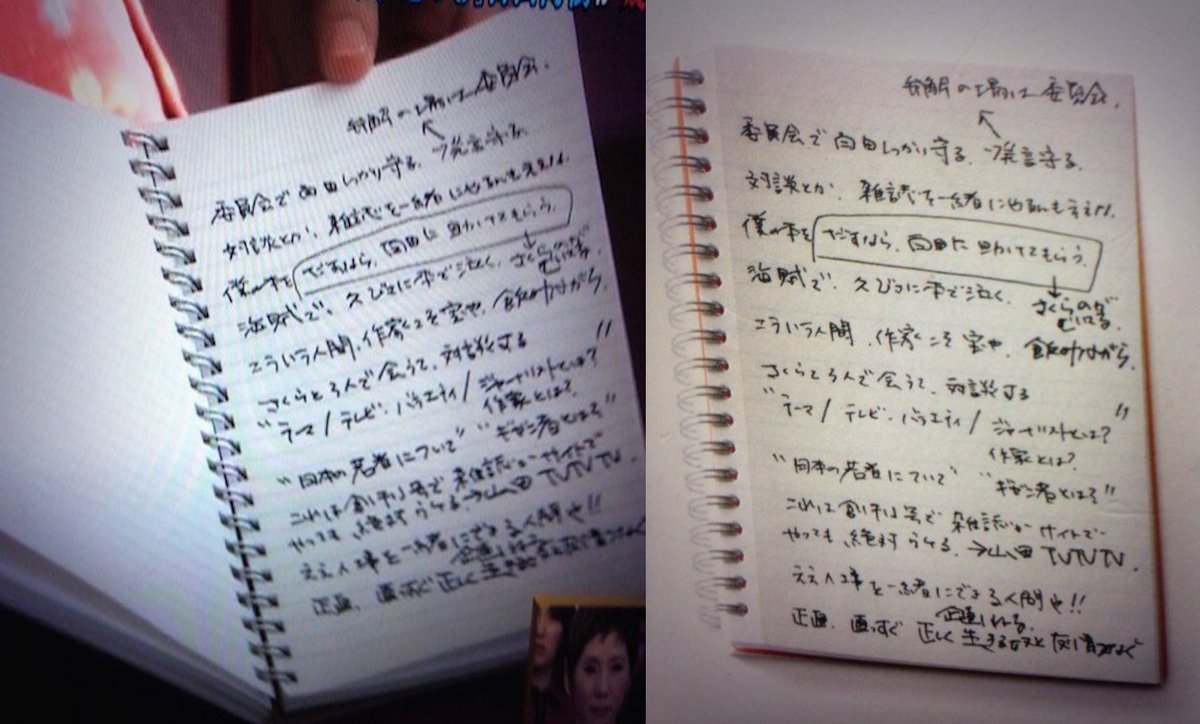 弁解の場は委員会。
委員会で百田しっかり守る。発言守る。
対談とか、雑誌を一緒にやるんもええナ。
僕の本をだすなら、百田に助けてもらう。
海賊で、久びさに本で泣く。さくらの
こういう人間、作家こそ宝や。飲みながら。
さくらと3人で会うて、対談する
"テーマ/テレビ・バラエティ/ジャーナリストとは?"
作家とは?
"日本の若者について" "ギゼン者とは?"
これは創刊号で雑誌 サイトで
やっても絶対ウケる。→山田TVTVTV
ええ仕事を一緒にできる人間や!!
正直、真っすぐ 正しく生きる
弁解の場は委員会。
委員会で百田しっかり守る。発言守る。
対談とか、雑誌を一緒にやるんもええナ。
僕の本をだすなら、百田に助けてもらう。
海賊で、久びさに本で泣く。さくらの
こういう人間、作家こそ宝や。飲みながら。
さくらと3人で会うて、対談する
"テーマ/テレビ・バラエティ/ジャーナリストとは?"
作家とは?
"日本の若者について" "ギゼン者とは?"
これは創刊号で雑誌 サイトで
やっても絶対ウケる。→山田TVTVTV。
ええ仕事を一緒にできる人間や!!
正直、真っすぐ 正しく生きる